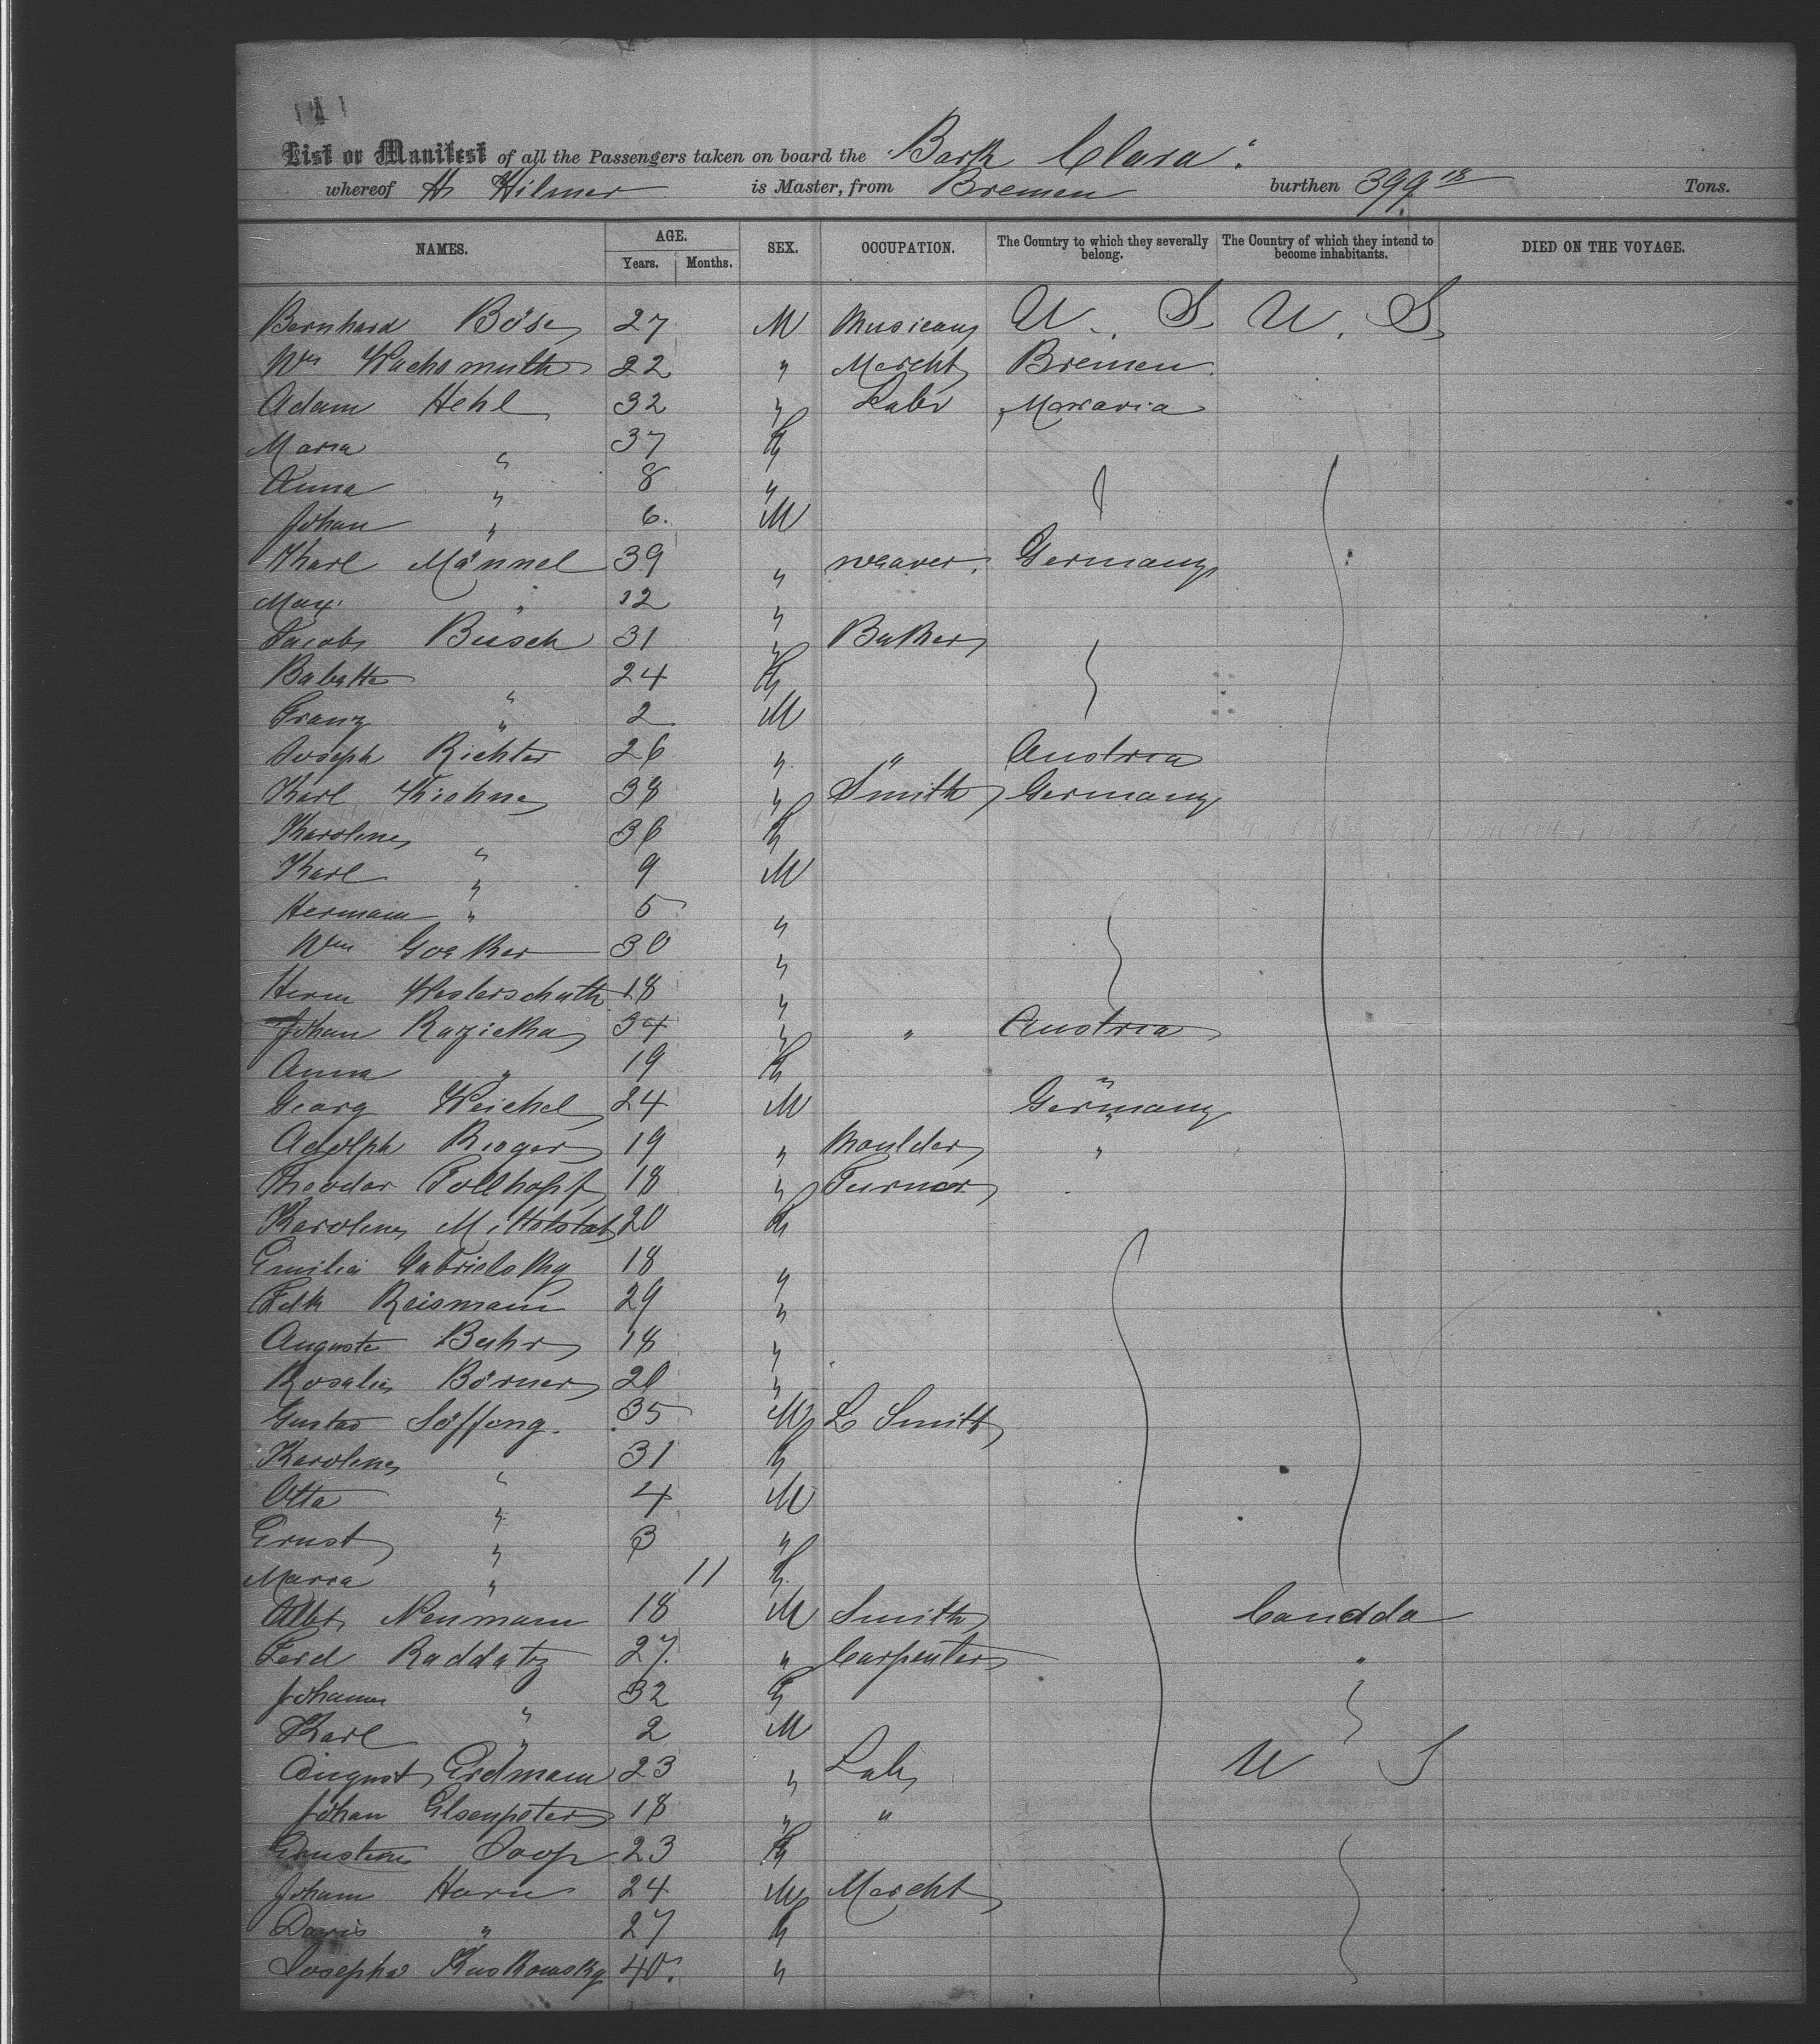 List or Manifest of all the Passengers taken on board the Bark Clara.
whereof H Hilmer is Master, from Bremen burthen 399 18 Tons.
NAMES. AGE. Years. Months. SEX. OCCUPATION. The Country to which they severally belong. The Country of which they intend to become inhabitants. DIED ON THE VOYAGE.
Bernhard Böse 27 M Musican U. S U. S
Wm Wachsmuth 22 " Mercht Bremen
Adam Hehl 32 " Labr
Maria " 37 F
Anna " 8 "
Johan " 6 M
Karl Männel 39 " weaver Germany
Max " 12 "
Jacob Busch 31 " Baker
Babatte " 24 F
Franz " 2 M
Joseph Richter 26 " " Austria
Karl Kiehne 38 " Smith Germany
Karoline " 36 F
Karl " 9 M
Hermann " 5 "
Wm Goeker 30 "
Herm Westerschulth 18 "
Johan Razicka 34 " " Austria
Anna " 19 F "
Georg Weichel 24 M Germany
Adolph Rieger 19 " Moulder "
Theodor Tollhopf 18 " Turner
Karoline 20 F
Emilie Gabrielsky 18 "
Reismann 29 "
Auguste Buhr 18 "
Rosalie Börner 20 "
Gustav Söffing 35 M L Smith
Karoline " 31 F
Otto " 4 M
Ernst " 3 "
Maria " 11 F
Albt Neumann 18 M Smith Canada
Ferd Raddatz 27 " Carpenter "
Johanna " 32 F
Karl " 2 M
August Erdmann 23 " Lab U S
Johan Elsenpeter 18 " "
Ernstine 23 F
Johann Horn 24 M Mercht
Doris " 27 F
Josepha Kuskowsky 40 "